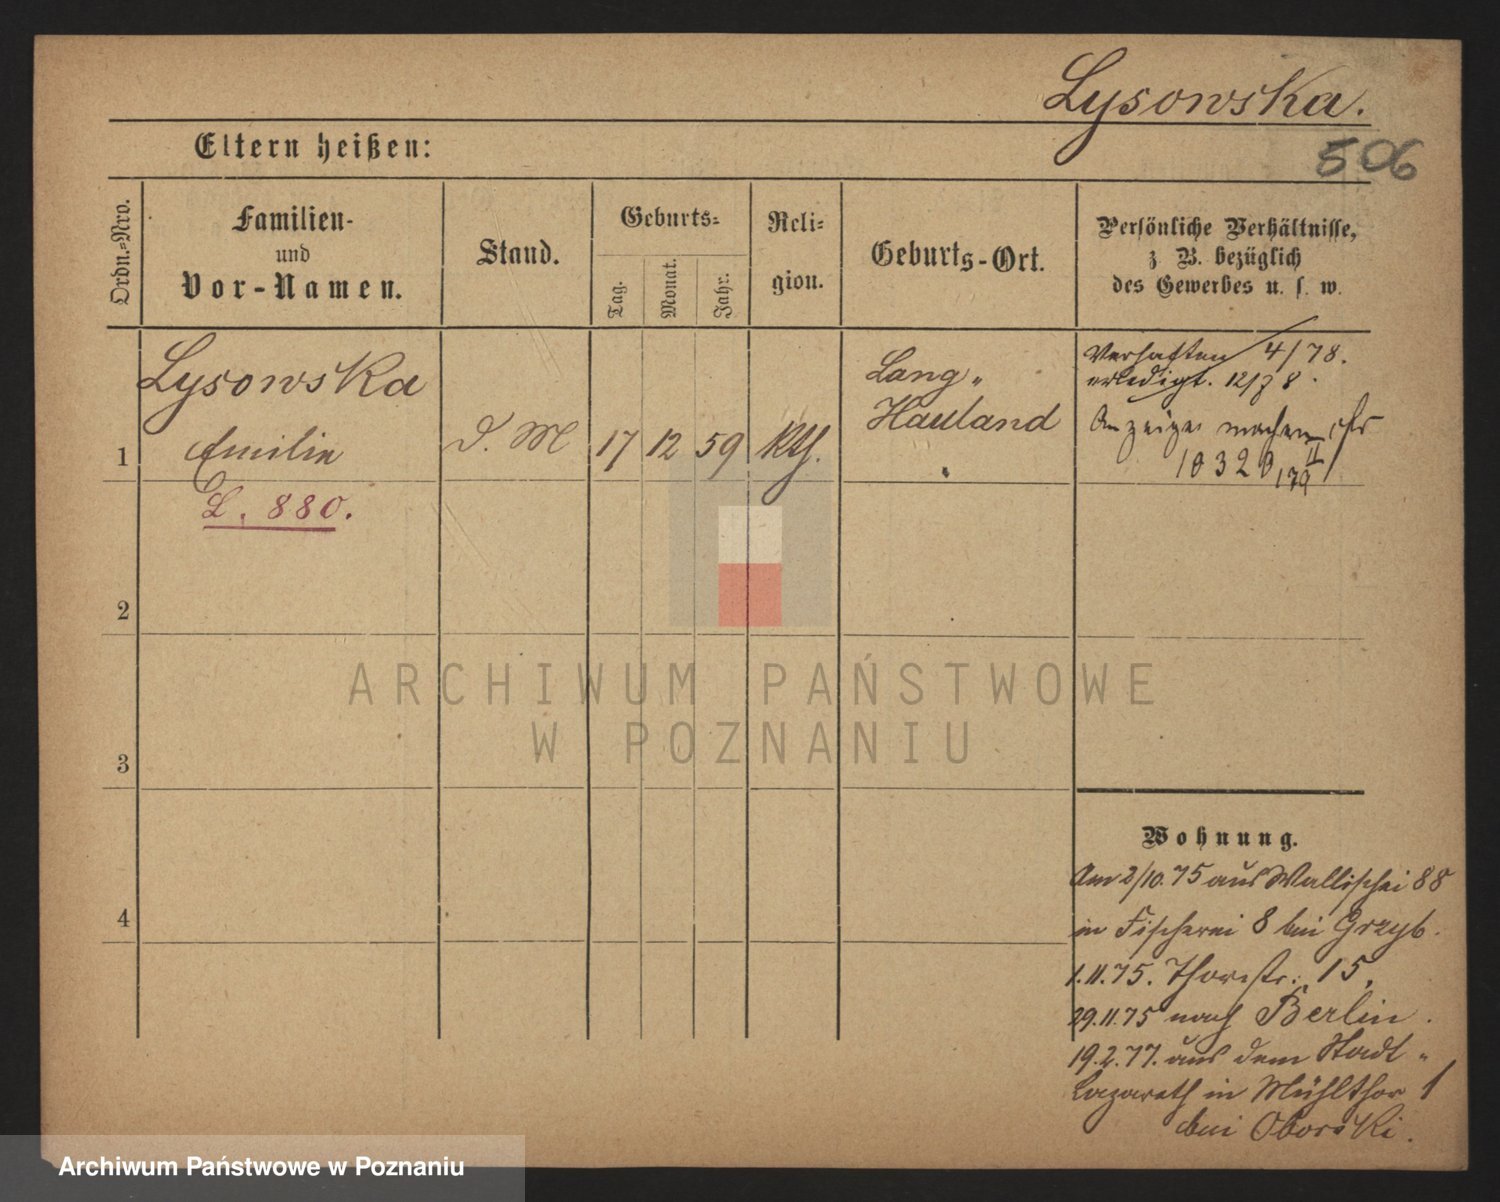 Lysowska.
506
Eltern heißen:
Ordn.-Nro.
Familien-
und
Vor-Namen.
Stand.
Geburts-
Tag.
Monat.
Jahr.
Reli-
gion.
Geburts-Ort.
Persönliche Verhältnisse,
z. B. bezüglich
des Gewerbes u. s. w.
1
Lysowska
Emilie
L. 880.
D. M
17
12
59
Kth.
Lang„
Hauland
Verhaften 4/78.
erledigt. 12/78.
Anzeige machen
10320 II/79
2
3
4
Wohnung.
Am 2/10.75 aus Wallischei 88
in Fischerei 8 bei Grzyb.
1.11.75. Thorstr. 15,
29.11.75 nach Berlin.
19.2.77. aus dem Stadt-
Lazareth in Mühlthor 1
bei Oborski.
ARCHIWUM PAŃSTWOWE
W POZNANIU
Archiwum Państwowe w Poznaniu